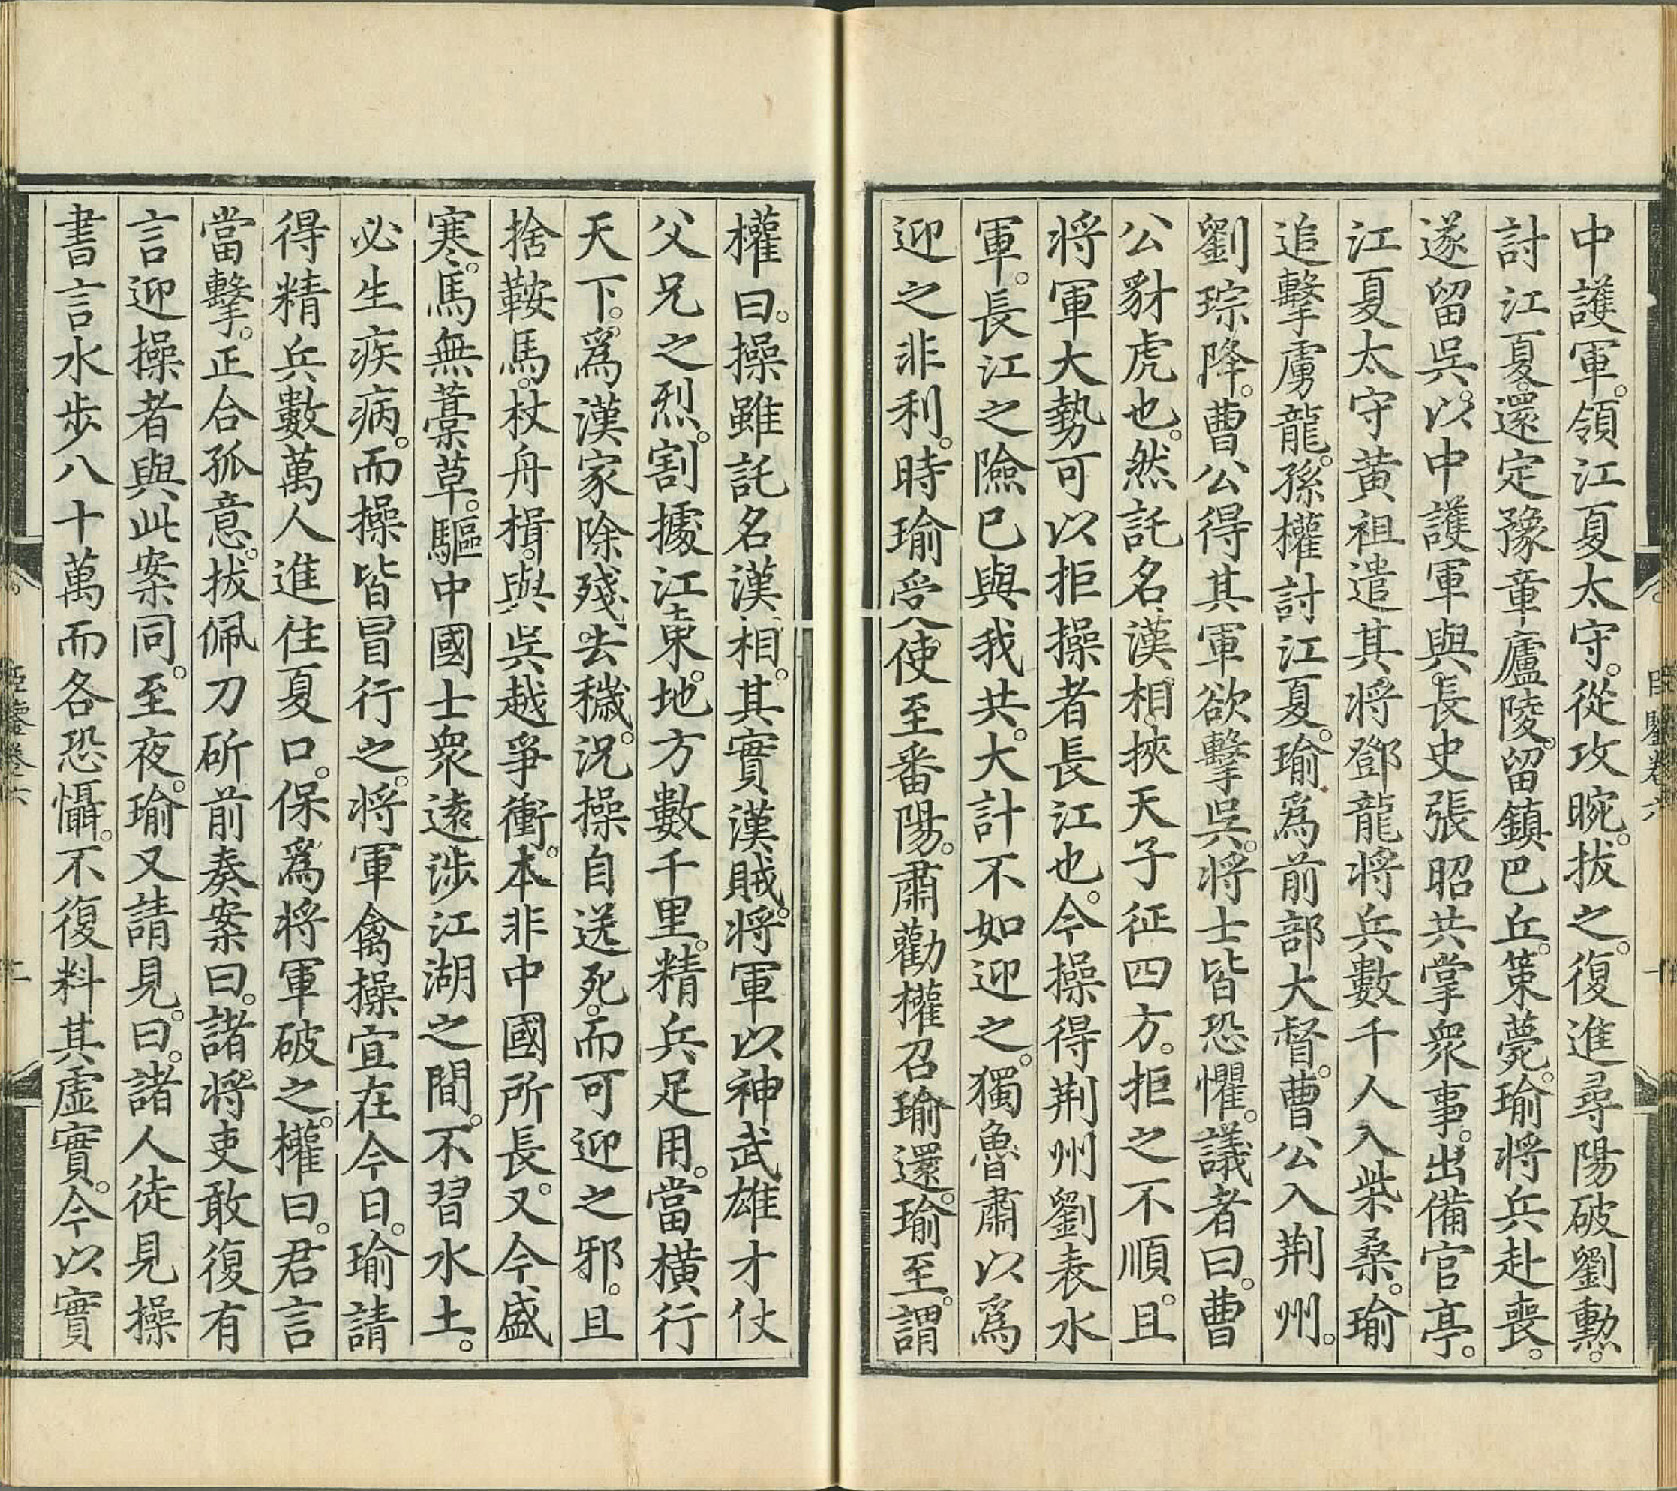 中護軍。領江夏太守。從攻晥。拔之。復進尋陽破劉勲。
討江夏。還定豫章廬陵。留鎮巴丘。策薨。瑜將兵赴喪。
遂留吳。以中護軍與長史張昭共掌衆事。出備官亭。
江夏太守黄祖遣其將鄧龍將兵數千人入柴桑。瑜
追擊虜龍。孫權討江夏。瑜爲前部大督。曹公入荆州。
劉琮降。曹公得其軍欲擊吳。將士皆恐懼。議者曰。曹
公豺虎也。然託名漢相。挾天子征四方。拒之不順。且
將軍大勢可以拒操者長江也。今操得荆州劉表水
軍。長江之險已與我共。大計不如迎之。獨魯肅以爲
迎之非利。時瑜受使至番陽。肅勸權召瑜還。瑜至。謂
權曰。操雖託名漢相。其實漢賊。將軍以神武雄才仗
父兄之烈。割據江東。地方數千里。精兵足用。當横行
天下。爲漢家除殘去穢。況操自送死。而可迎之邪。且
捨鞍馬。杖舟楫。與吳越爭衝。本非中國所長。又今盛
寒。馬無藁草。驅中國士衆遠涉江湖之間。不習水土。
必生疾病。而操皆冒行之。將軍禽操宜在今日。瑜請
得精兵數萬人進住夏口。保爲將軍破之。權曰。君言
當擊。正合孤意。拔佩刀斫前奏案曰。諸將吏敢復有
言迎操者與此案同。至夜。瑜又請見。曰。諸人徒見操
書言水步八十萬而各恐懾。不復料其虛實。今以實